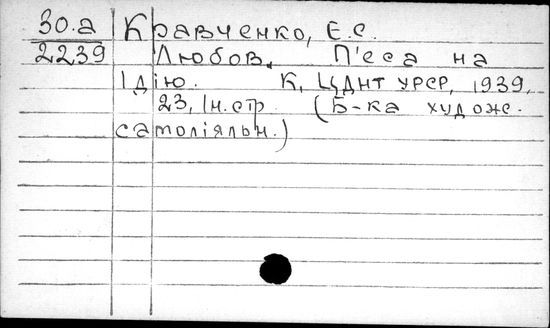 30.а Кравченко, Е.С.
2239 Любов. П'еса на
1 дію. К, ЦДНТ УРСР, 1939,
23, 1н.стр (Б-ка худож.
самоліяльн.)